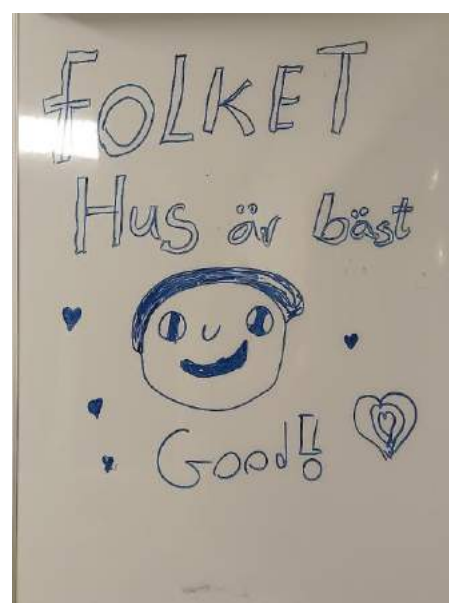 FOLKET
Hus är bäst
Good!